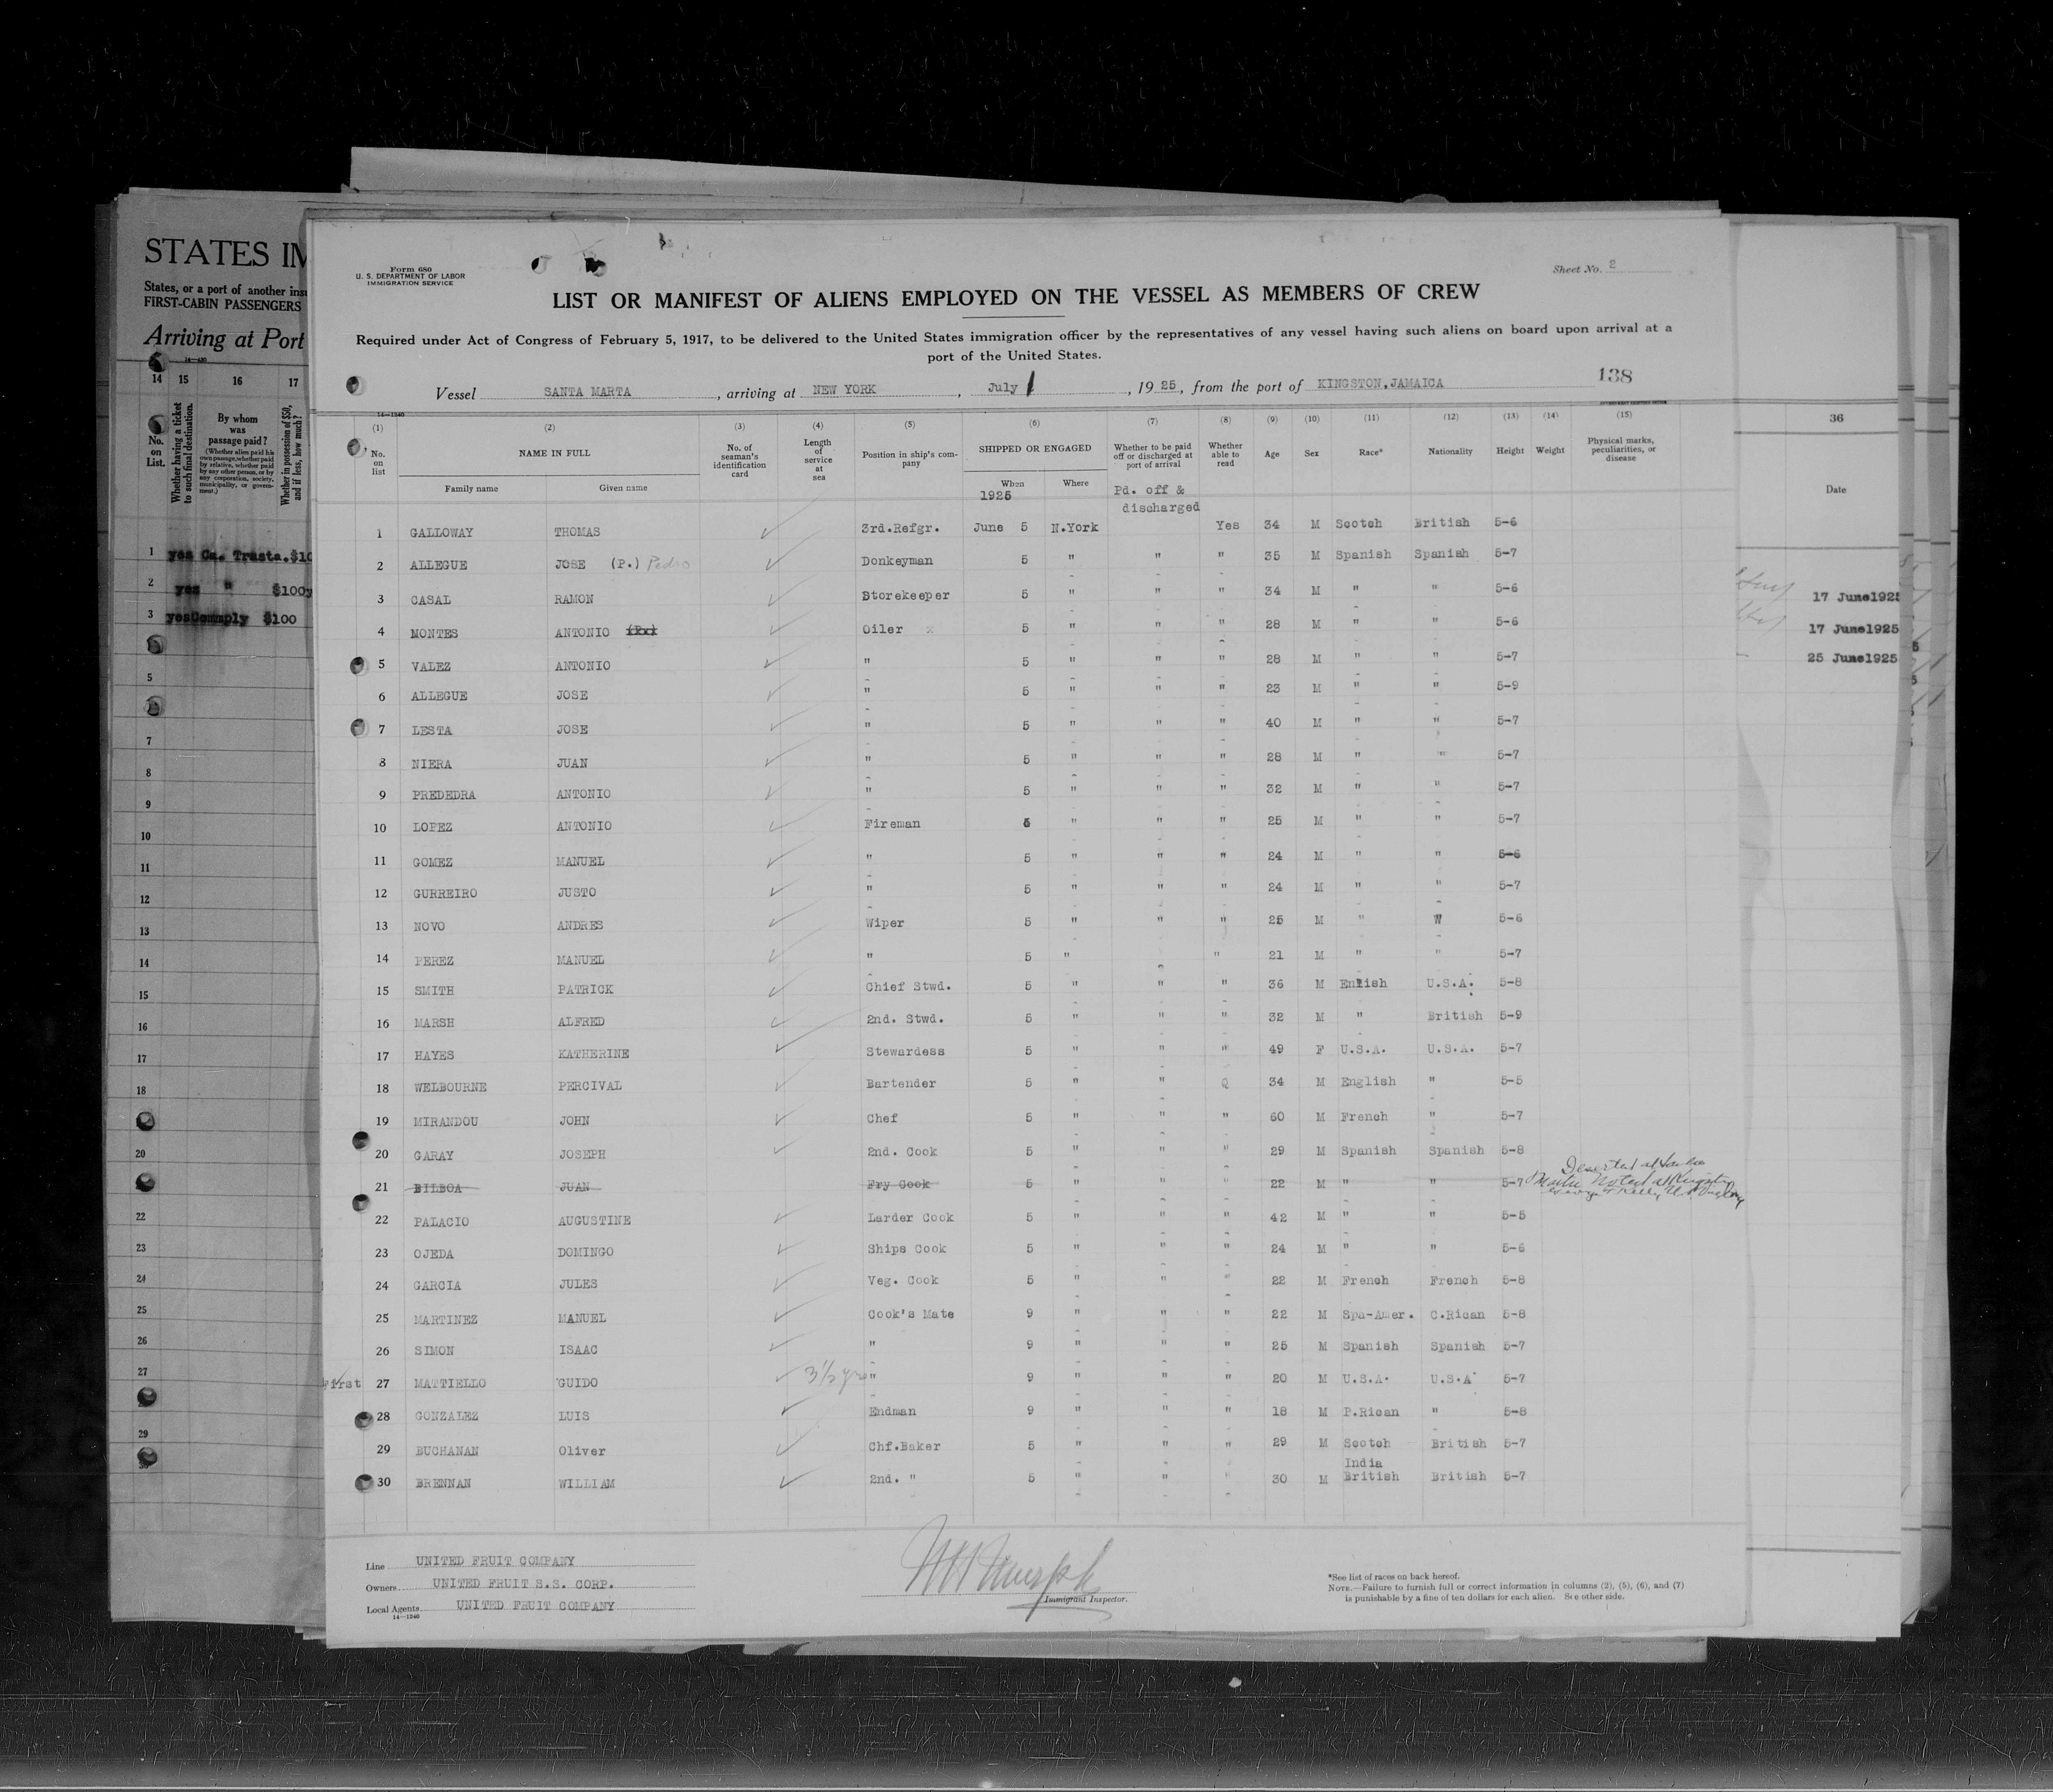 STATES IM
States, or a port of another insu
FIRST-CABIN PASSENGERS
Arriving at Port
14 15 16 17
No. on List.
Whether having a ticket to such final destination.
By whom was passage paid?
(Whether alien paid his own passage, whether paid by relative, whether paid by any other person, or by any corporation, society, municipality, or government.)
Whether in possession of $50, and if less, how much?
1 yes
2 yes " $100
3 yes $100
Form 680
U. S. DEPARTMENT OF LABOR
IMMIGRATION SERVICE
Sheet No. 2
LIST OR MANIFEST OF ALIENS EMPLOYED ON THE VESSEL AS MEMBERS OF CREW
Required under Act of Congress of February 5, 1917, to be delivered to the United States immigration officer by the representatives of any vessel having such aliens on board upon arrival at a
port of the United States.
Vessel SANTA MARTA, arriving at NEW YORK, July 1, 1925, from the port of KINGSTON, JAMAICA 138
14—1240
(1) (2) (3) (4) (5) (6) (7) (8) (9) (10) (11) (12) (13) (14) (15)
No. on list
NAME IN FULL
Family name Given name
No. of seaman's identification card
Length of service at sea
Position in ship's company
SHIPPED OR ENGAGED
When Where
1925
Whether to be paid off or discharged at port of arrival
Whether able to read
Age Sex Race* Nationality Height Weight
Physical marks, peculiarities, or disease
Pd. off &
discharged
1 GALLOWAY THOMAS 3rd.Refgr. June 5 N.York Yes 34 M Scotch British 5-6
2 ALLEGUE JOSE (P.) Pedro Donkeyman 5 " " " 35 M Spanish Spanish 5-7
3 CASAL RAMON Storekeeper 5 " " " 34 M " " 5-6
4 MONTES ANTONIO Oiler x 5 " " " 28 M " " 5-6
5 VALEZ ANTONIO " 5 " " " 28 M " " 5-7
6 ALLEGUE JOSE " 5 " " " 23 M " " 5-9
7 LESTA JOSE " 5 " " " 40 M " " 5-7
8 NIERA JUAN " 5 " " " 28 M " " 5-7
9 PREDEDRA ANTONIO " 5 " " " 32 M " " 5-7
10 LOPEZ ANTONIO Fireman 5 " " " 25 M " " 5-7
11 GOMEZ MANUEL " 5 " " " 24 M " " 5-6
12 GURREIRO JUSTO " 5 " " " 24 M " " 5-7
13 NOVO ANDRES Wiper 5 " " " 25 M " W 5-6
14 PEREZ MANUEL " 5 " " 21 M " " 5-7
15 SMITH PATRICK Chief Stwd. 5 " " " 36 M Enlish U.S.A. 5-8
16 MARSH ALFRED 2nd. Stwd. 5 " " " 32 M " British 5-9
17 HAYES KATHERINE Stewardess 5 " " " 49 F U.S.A. U.S.A. 5-7
18 WELBOURNE PERCIVAL Bartender 5 " " Q 34 M English " 5-5
19 MIRANDOU JOHN Chef 5 " " " 60 M French " 5-7
20 GARAY JOSEPH 2nd. Cook 5 " " " 29 M Spanish Spanish 5-8
21 BILBOA JUAN Fry Cook 5 " " " 22 M " " 5-7 Deserted at
22 PALACIO AUGUSTINE Larder Cook 5 " " " 42 M " " 5-5
23 OJEDA DOMINGO Ships Cook 5 " " " 24 M " " 5-6
24 GARCIA JULES Veg. Cook 5 " " " 22 M French French 5-8
25 MARTINEZ MANUEL Cook's Mate 9 " " " 22 M Spa-Amer. C.Rican 5-8
26 SIMON ISAAC " 9 " " " 25 M Spanish Spanish 5-7
First 27 MATTIELLO GUIDO 3½ yrs " 9 " " " 20 M U.S.A. U.S.A 5-7
28 GONZALEZ LUIS Endman 9 " " " 18 M P.Rican " 5-8
29 BUCHANAN Oliver Chf.Baker 5 " " " 29 M Scotch British 5-7
30 BRENNAN WILLIAM 2nd. " 5 " " " 30 M India British British 5-7
Line UNITED FRUIT COMPANY
Owners UNITED FRUIT S.S. CORP.
Local Agents UNITED FRUIT COMPANY
14—1240
Immigrant Inspector.
*See list of races on back hereof.
NOTE.—Failure to furnish full or correct information in columns (2), (5), (6), and (7)
is punishable by a fine of ten dollars for each alien. See other side.
36
Date
17 June 1925
17 June 1925
25 June 1925